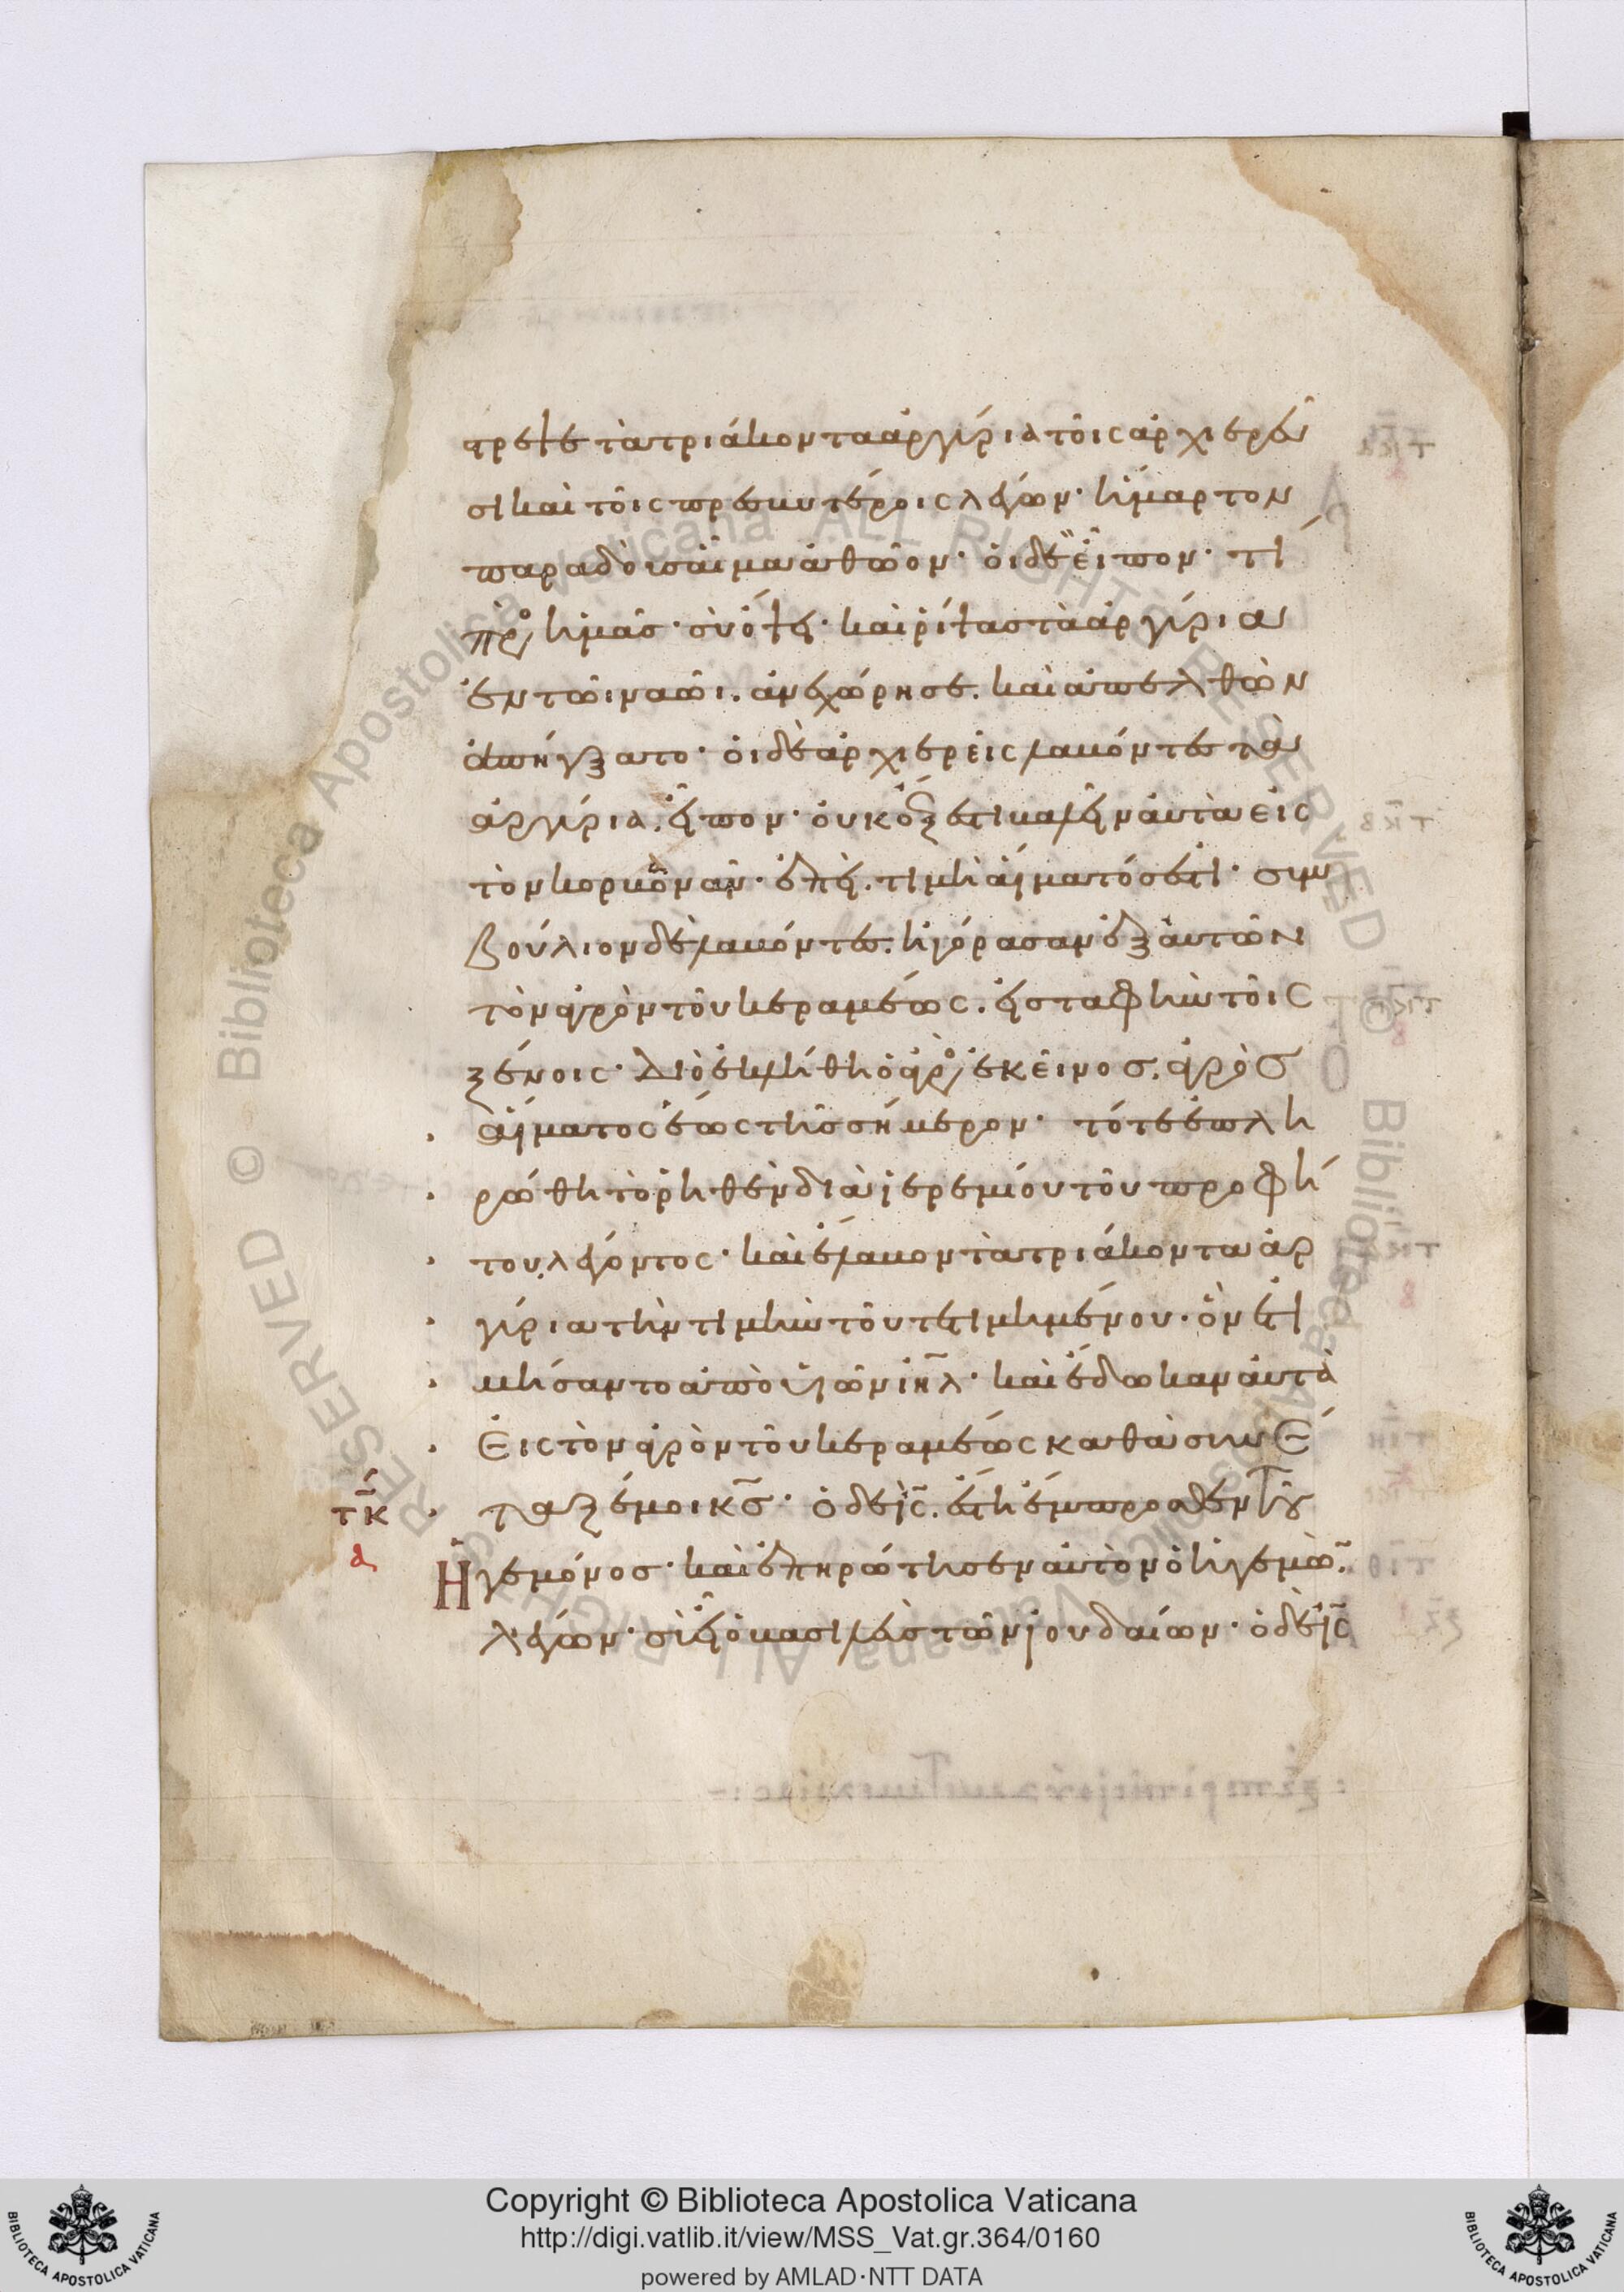 στρεψε τὰ τριάκοντα ἀργύρια τοῖς ἀρχιερεῦ
σι καὶ τοῖς πρεσβυτέροις λέγων· ἥμαρτον
παραδοὺς αἷμα ἀθῶον· οἱ δὲ εἶπον· τί
πρὸς ἡμᾶς· σὺ ὄψει· καὶ ῥίψας τὰ ἀργύρια
ἐν τῶι ναῶι. ἀνεχώρησε. καὶ ἀπελθὼν
ἀπήγξατο· οἱ δὲ ἀρχιερεῖς λαβόντες τὰ
ἀργύρια. εἶπον· οὐκ ἔξεστι βαλεῖν αὐτὰ εἰς
τὸν κορβωνᾶν· ἐπεὶ. τιμὴ αἵματός ἐστι· συμ
βούλιον δὲ λαβόντες. ἠγόρασαν ἐξ αὐτῶν
τὸν ἀγρὸν τοῦ κεραμέως. εἰς ταφὴν τοῖς
ξένοις· Διὸ ἐκλήθη ὁ ἀγρὸς ἐκεῖνος. ἀγρὸς
αἵματος ἕως τῆς σήμερον· τότε ἐπλη
ρώθη τὸ ῥηθὲν διὰ ἱερεμίου τοῦ προφή
του. λέγοντος· καὶ ἔλαβον τὰ τριάκοντα ἀρ
γύρια τὴν τιμὴν τοῦ τετιμημένου· ὃν ἐτι
μήσαντο ἀπὸ υἱῶν ιηλ· καὶ ἔδωκαν αὐτὰ
Εἰς τὸν ἀγρὸν τοῦ κεραμέως καθὰ συνέ
ταξέ μοι κς· ὁ δὲ ις. ἔστη ἔμπροσθεν τοῦ
Ἡγεμόνος· καὶ ἐπηρώτησεν αὐτὸν ὁ ἡγεμὼν.
λέγων· σὺ εἶ ὁ βασιλεὺς τῶν ἰουδαίων· ὁ δὲ ις
τκ
α
Copyright © Biblioteca Apostolica Vaticana
http://digi.vatlib.it/view/MSS_Vat.gr.364/0160
powered by AMLAD·NTT DATA